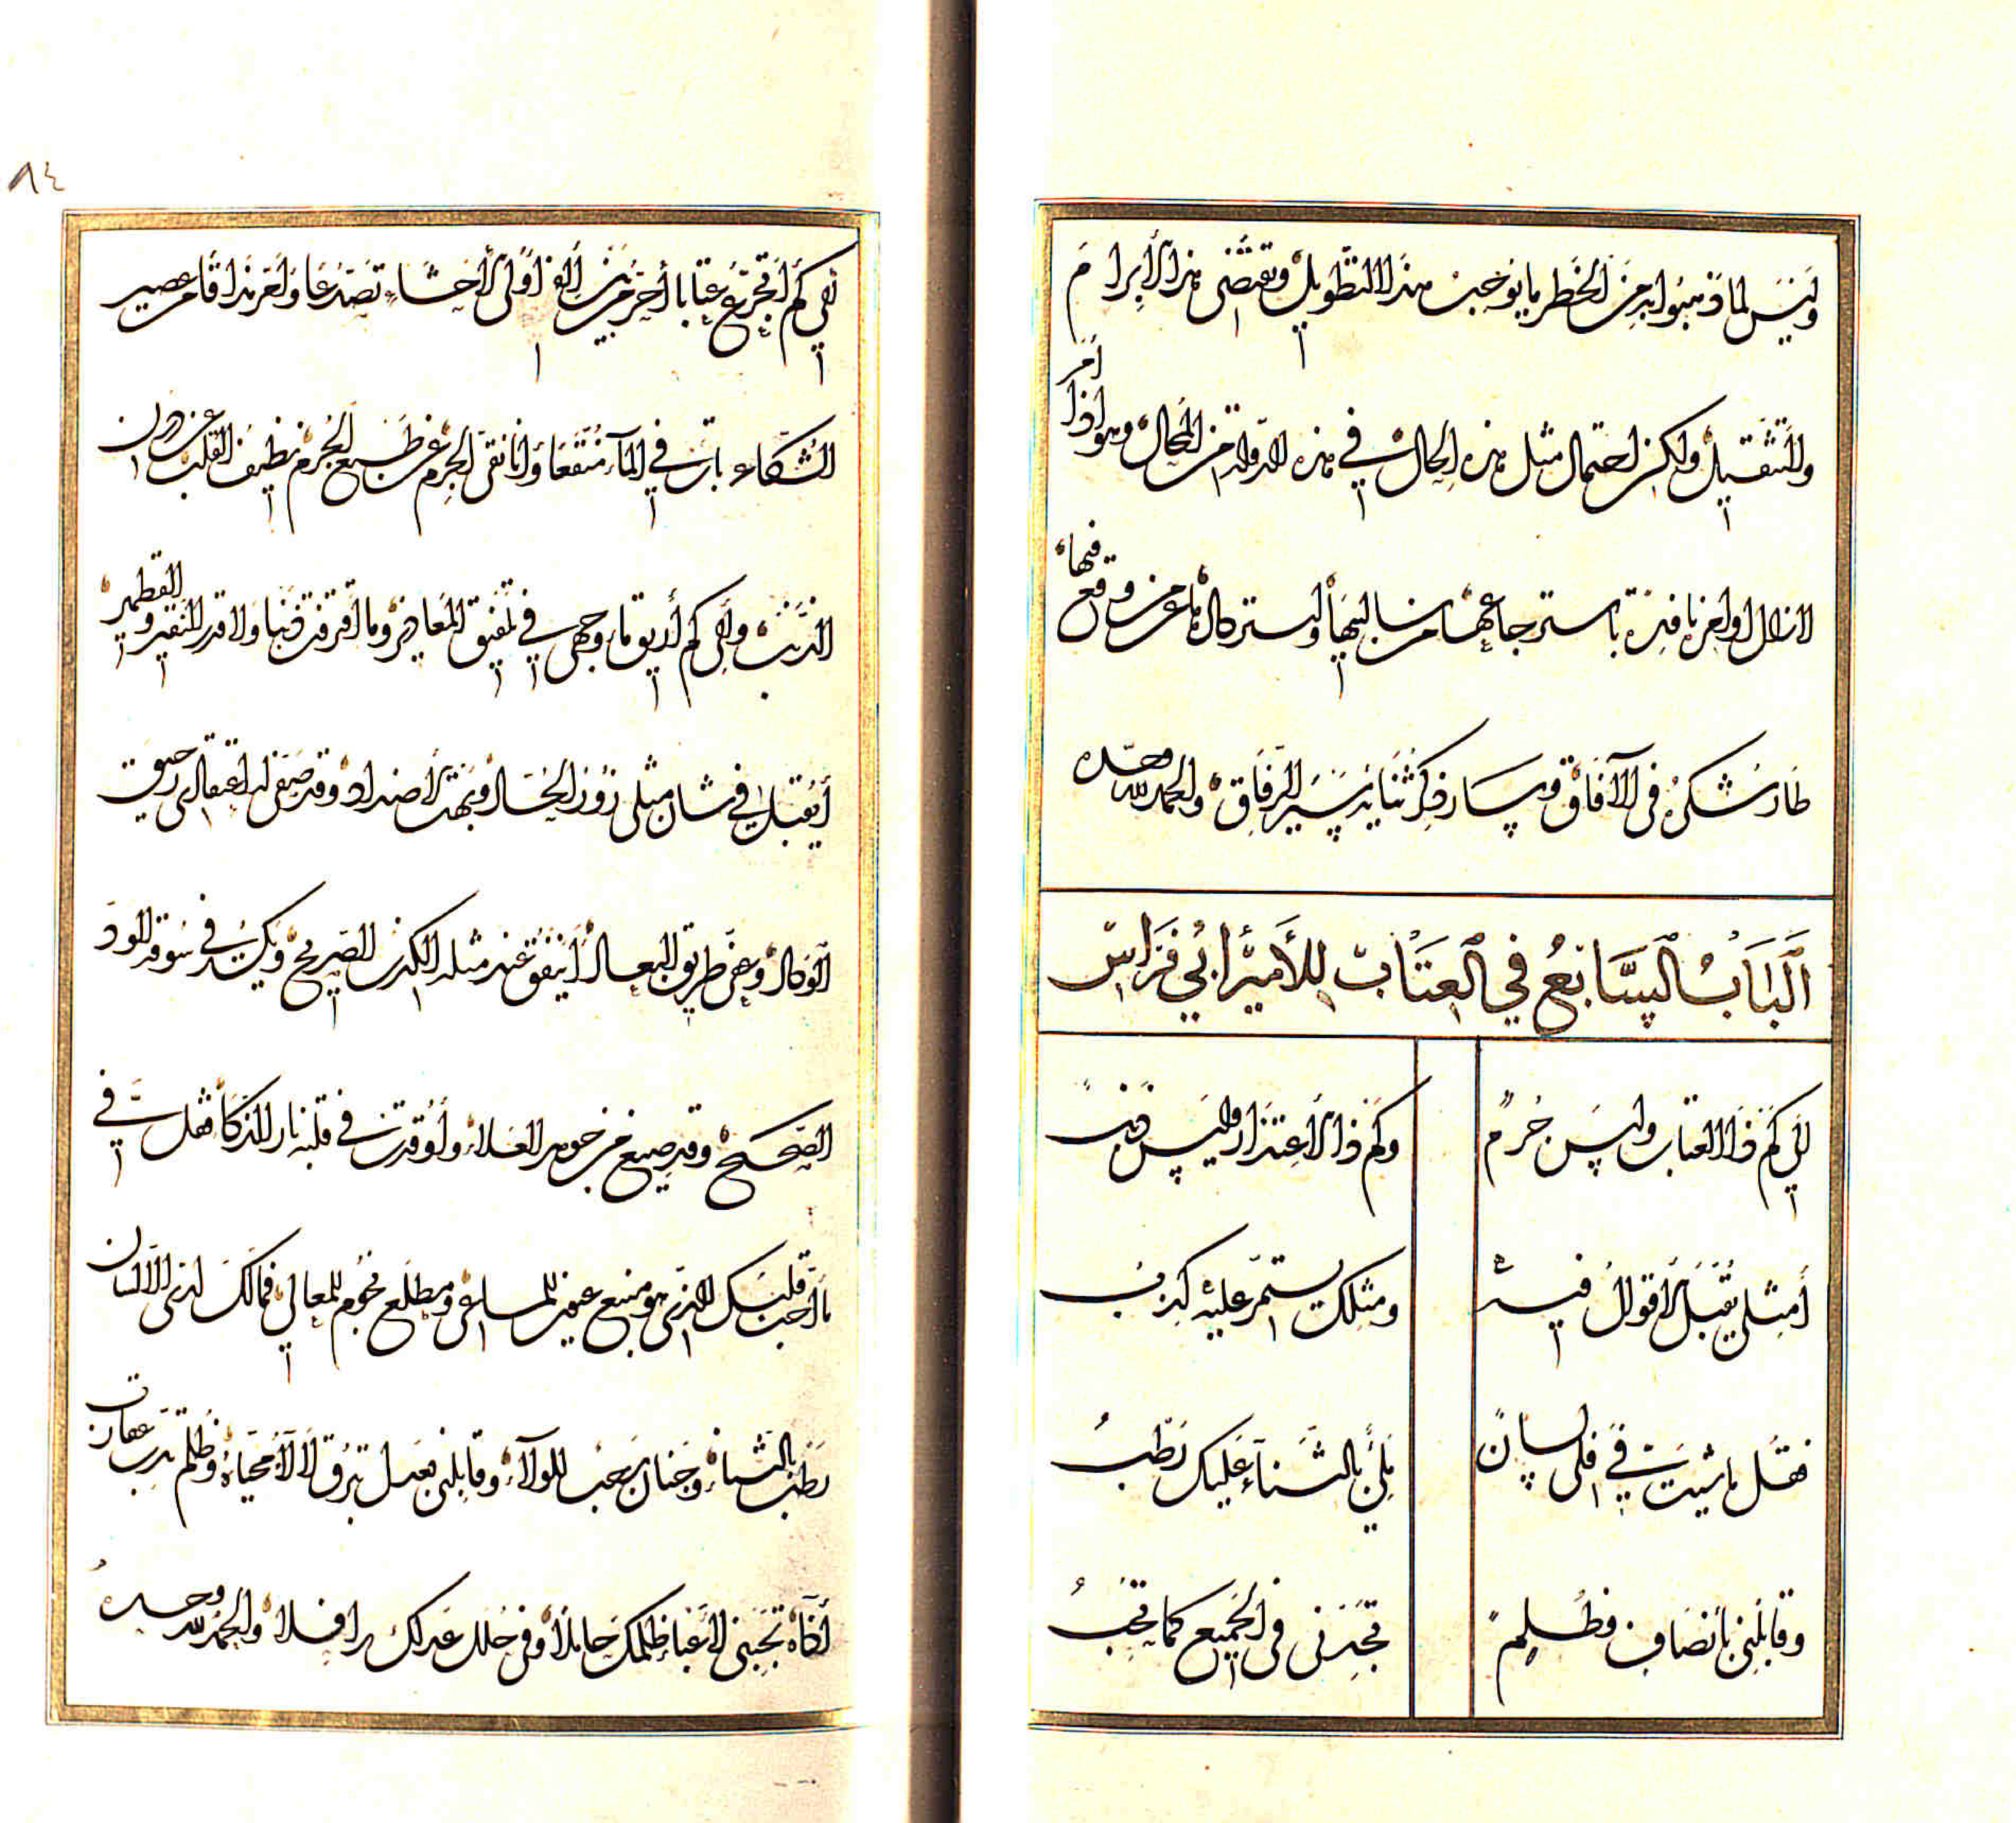 وليس لما ذهبوا به من الخطر ما يوجب هذا التطويل ويقتضى هذا الابرام
والتثقيل ولكن احتمال مثل هذه الحال في هذه الدولة من المحال وهو اذا امر
لازال اوامره نافذة باسترجاعها من سالبيها واستدراك ما عزم وقع فيها
طار شكره فى الآفاق وسار ذكر ثنايه سير الرفاق والحمد لله وحده
الباب السابع في العتاب للأمير ابي فراس
الى كم ذا العتاب وليس جرم
وكم ذا الاعتذار وليس ذنب
أمثلى تقبل الأقوال فيه
ومثلك يستمر عليه كذب
فقل ما شيت في فلى لسان
ملئ بالثناء عليك رطب
وقابلني بانصاف وظلم
تجدنى فى الجميع كما تحب
٨٤
الى كم اتجرع عتابا أحر من لهب اولى الأحشاء تصدعا وأمر مذاقا من عصير
الشكاء بات في الماء منقعا وانا نقى الجرم عن طبع الجرم نظيف القلب عن درن
الذنب والى كم أريق ماء وجهى في تلفيق المعاذير وما اقترفت ذنبا ولا قدر النقير والقطمير
أيقبل في شان مثلى زور الحساد وبهت الأضداد وقد صفى له اعتقالى رحيق
الوكاد وعن طريق البعاد أينفق عند مثله الكذب الصريح ويكسد في سوقه الود
الصحيح وقد صيغ من جوهر العلاء وأوقدت في قلبه نار الذكاء فقل في
ما أحب قلبك الذى هو منبع عيون المساعى ومطلع نجوم المعالي فمالك لدى الا لسان
رطب بالثناء وجنان رحب للولاء وقابلنى بعدل تبرق لألاء محياه وظلم تدب عقارب
أذاه تجدنى لأعباء ظلمك حاملا وفى حلل عدلك رافلا والحمد لله وحده